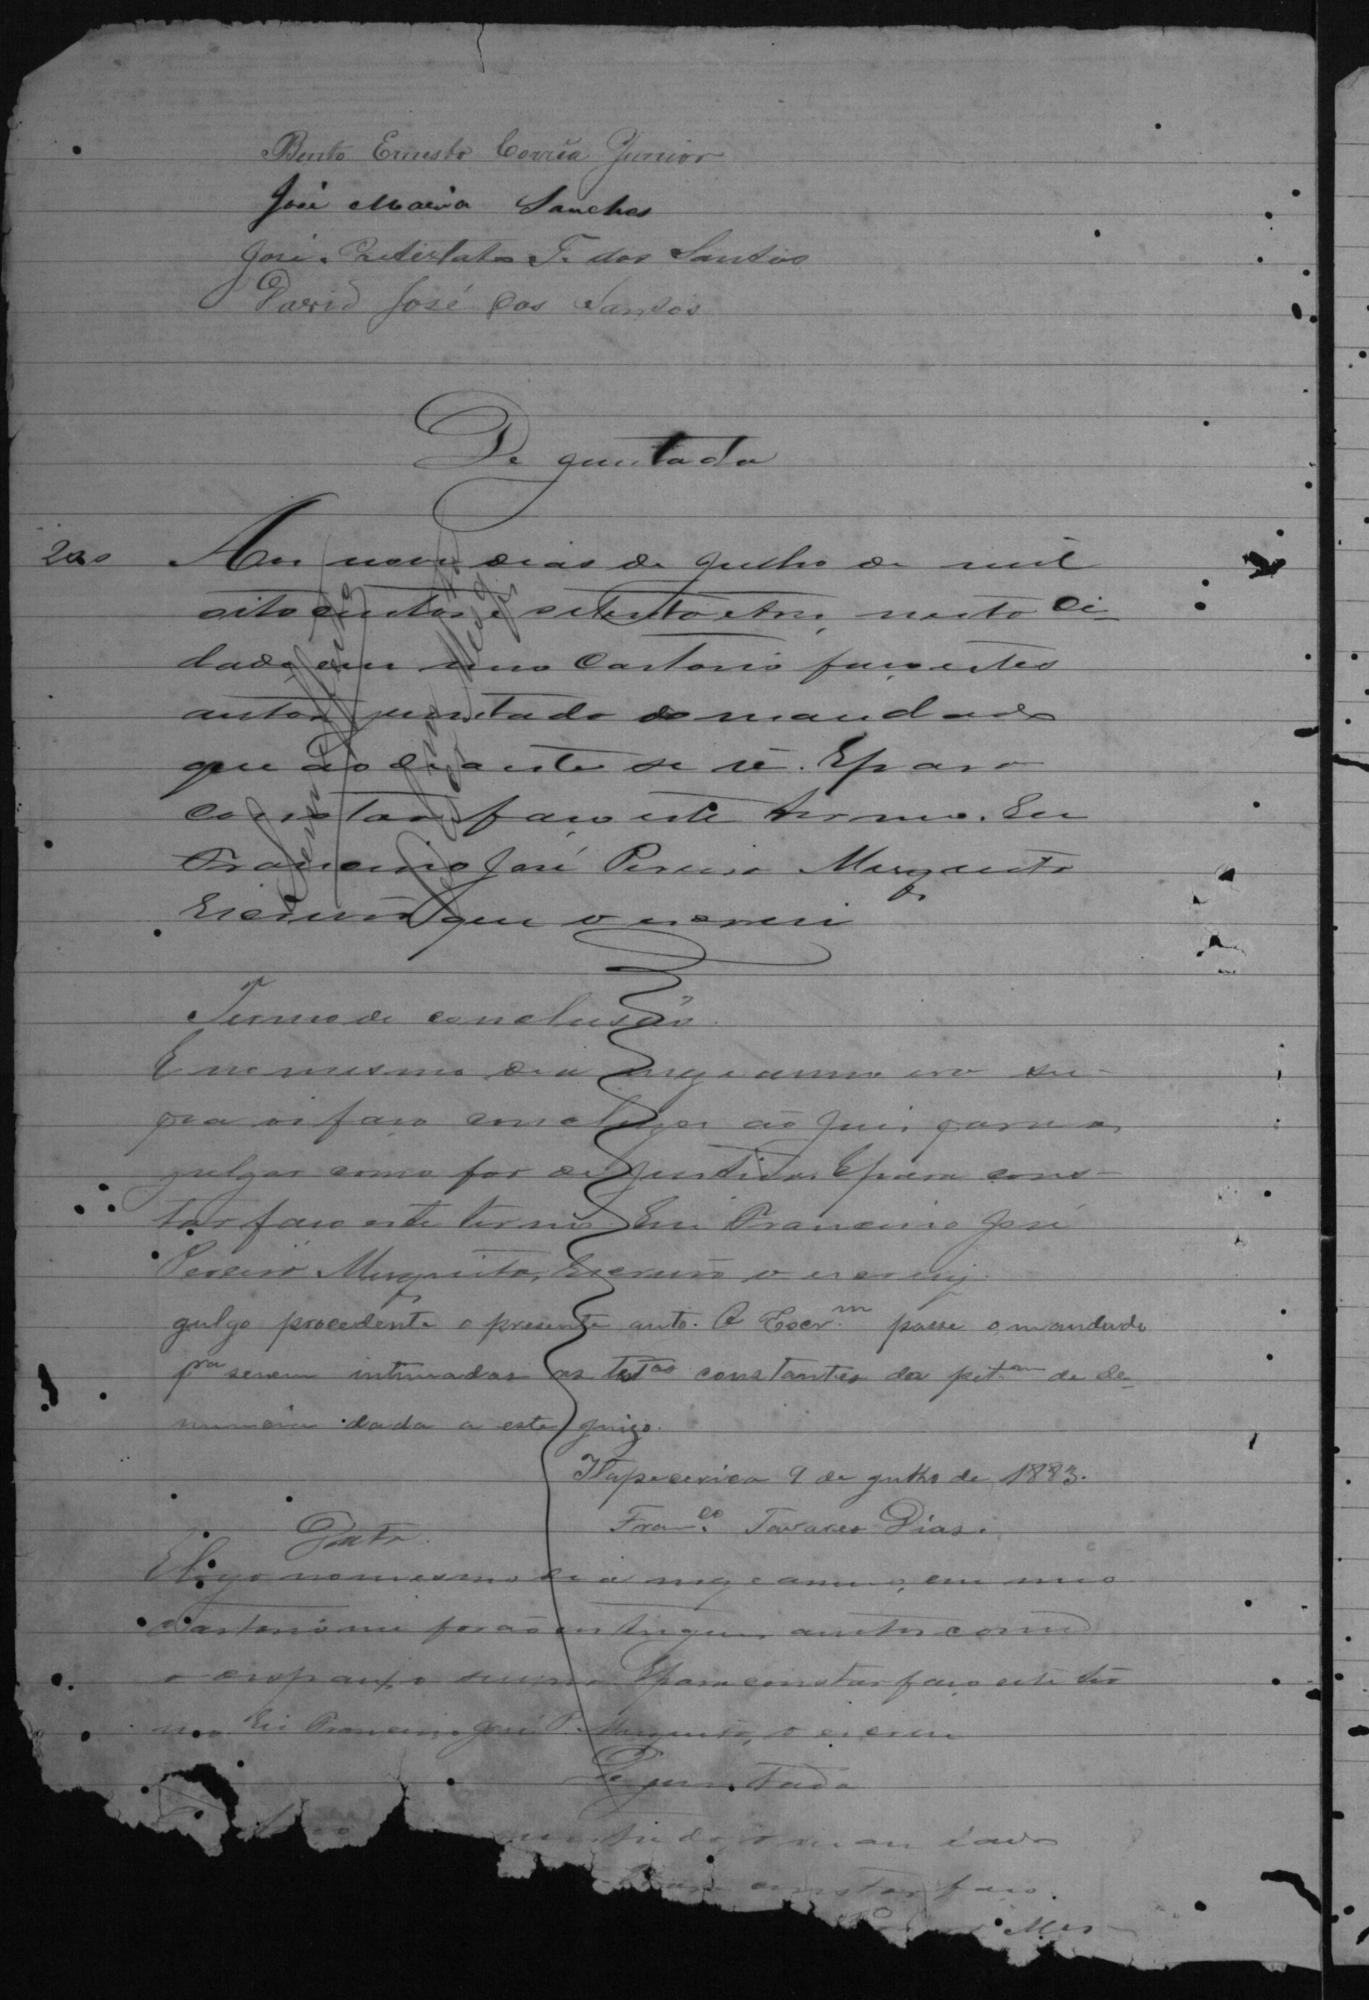 Bento Ernesto Corrêa Junior
José Maria Sanches
José F. dos Santos
David José dos Santos
De juntada
200 Aos nove dias de Julho de mil
oito centos e oitenta e tres, nesta Ci-
dade em meo Cartorio faço estes
autos juntada do mandado
que ao diante se vê. E para
constar faço este termo. Eu
Francisco José Pereira Mesquita
Escrivão que o escrevi
Termo de conclusão
E no mesmo dia mez e anno era su-
pra os faço conclusos ao Juis para os
julgar como for de justiça. E para cons-
tar faço este termo. Eu Francisco José
Pereira Mesquita, Escrivão o escrevy.
Julgo procedente o presente auto. O Escr.m passe o mandado
pra serem intimadas as testas constantes da pet.am de de-
nuncia dada a este juizo.
Itapecerica 9 de julho de 1883.
Fran.co Tavares Dias.
Data
E logo no mesmo dia mez e anno, em meo
Cartorio me forão entregues autos com
o despaxo supra. E para constar faço este ter
mo Eu Francisco José P. Mesquita, o escrevi
De juntada
mandado
constar faço
Mes-